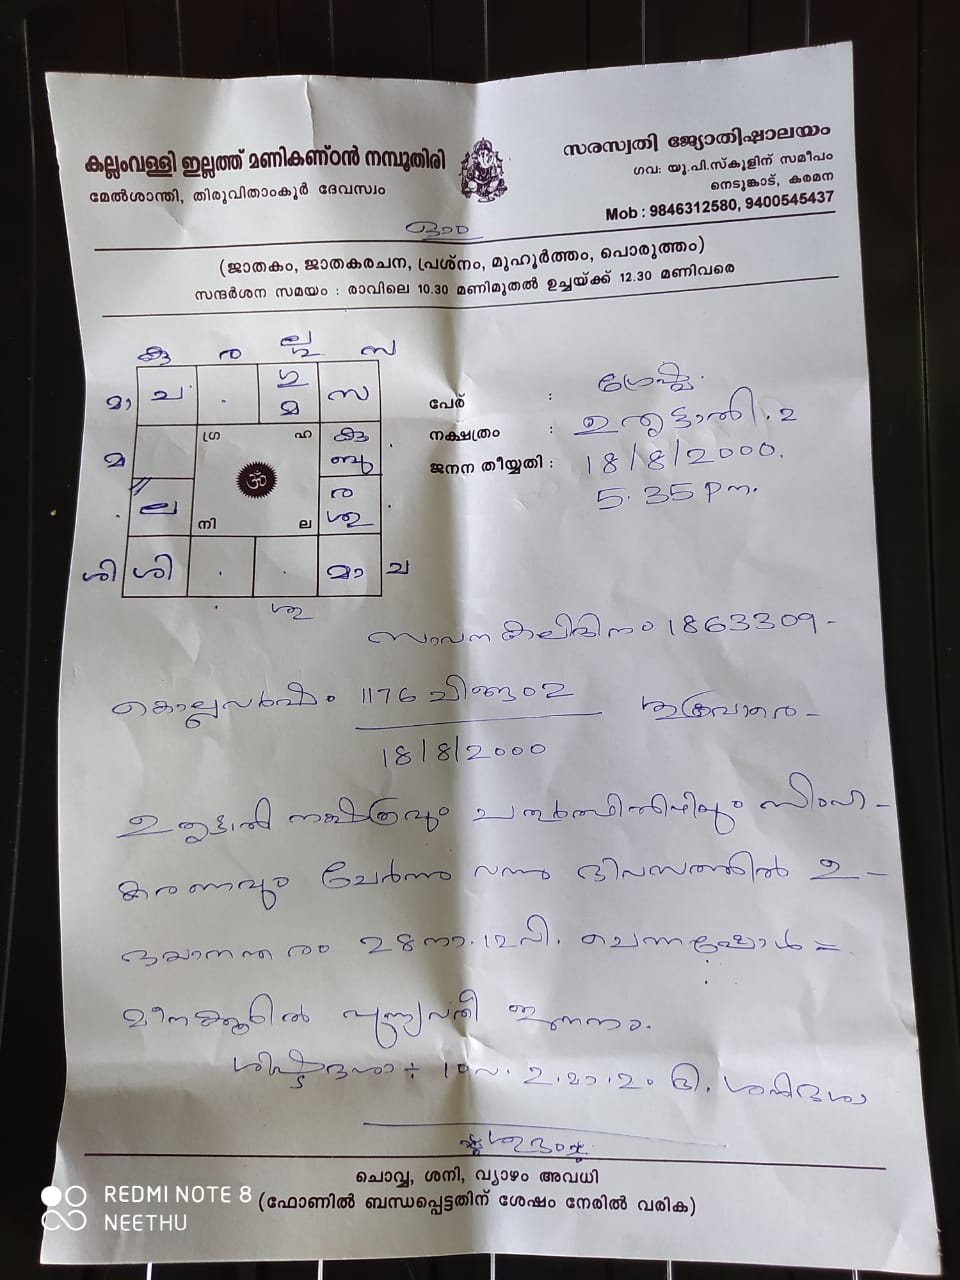 കല്ലംവള്ളി ഇല്ലത്ത് മണികണ്ഠൻ നമ്പൂതിരി
മേൽശാന്തി, തിരുവിതാംകൂർ ദേവസ്വം
സരസ്വതി ജ്യോതിഷാലയം
ഗവ: യു.പി.സ്കൂളിന് സമീപം
നെടുങ്കാട്, കരമന
Mob : 9846312580, 9400545437
(ജാതകം, ജാതകരചന, പ്രശ്നം, മുഹൂർത്തം, പൊരുത്തം)
സന്ദർശന സമയം : രാവിലെ 10.30 മണിമുതൽ ഉച്ചയ്ക്ക് 12.30 മണിവരെ
കു ര സ
മാ ച സ
ഗു
മ
മ ഗ്ര ഹ കു
ബു
ॐ
ല ര
ശു
നി ല
ശി ശി മാ ച
ശു
പേര് :
നക്ഷത്രം : ഉതൃട്ടാതി . 2
ജനന തീയ്യതി : 18/8/2000.
5.35 pm.
സാവന കലിദിനം 1863309 -
കൊല്ലവർഷം 1176 ചിങ്ങം 2
18/8/2000
നക്ഷത്രവും ചതുർത്ഥിതിഥിയും സിംഹ -
കരണവും ചേർന്നു വന്ന ദിവസത്തിൽ ഉ -
ദയാനന്തരം 28 നാ. 12 വി. ചെന്നപ്പോൾ =
മീനക്കൂറിൽ ജനനം.
ശിഷ്ടദശാ ÷ 10 വ. 2. മാ. 2 ദി. ശനിദശാ
ശുഭംഃ
ചൊവ്വ, ശനി, വ്യാഴം അവധി
(ഫോണിൽ ബന്ധപ്പെട്ടതിന് ശേഷം നേരിൽ വരിക)
REDMI NOTE 8
NEETHU